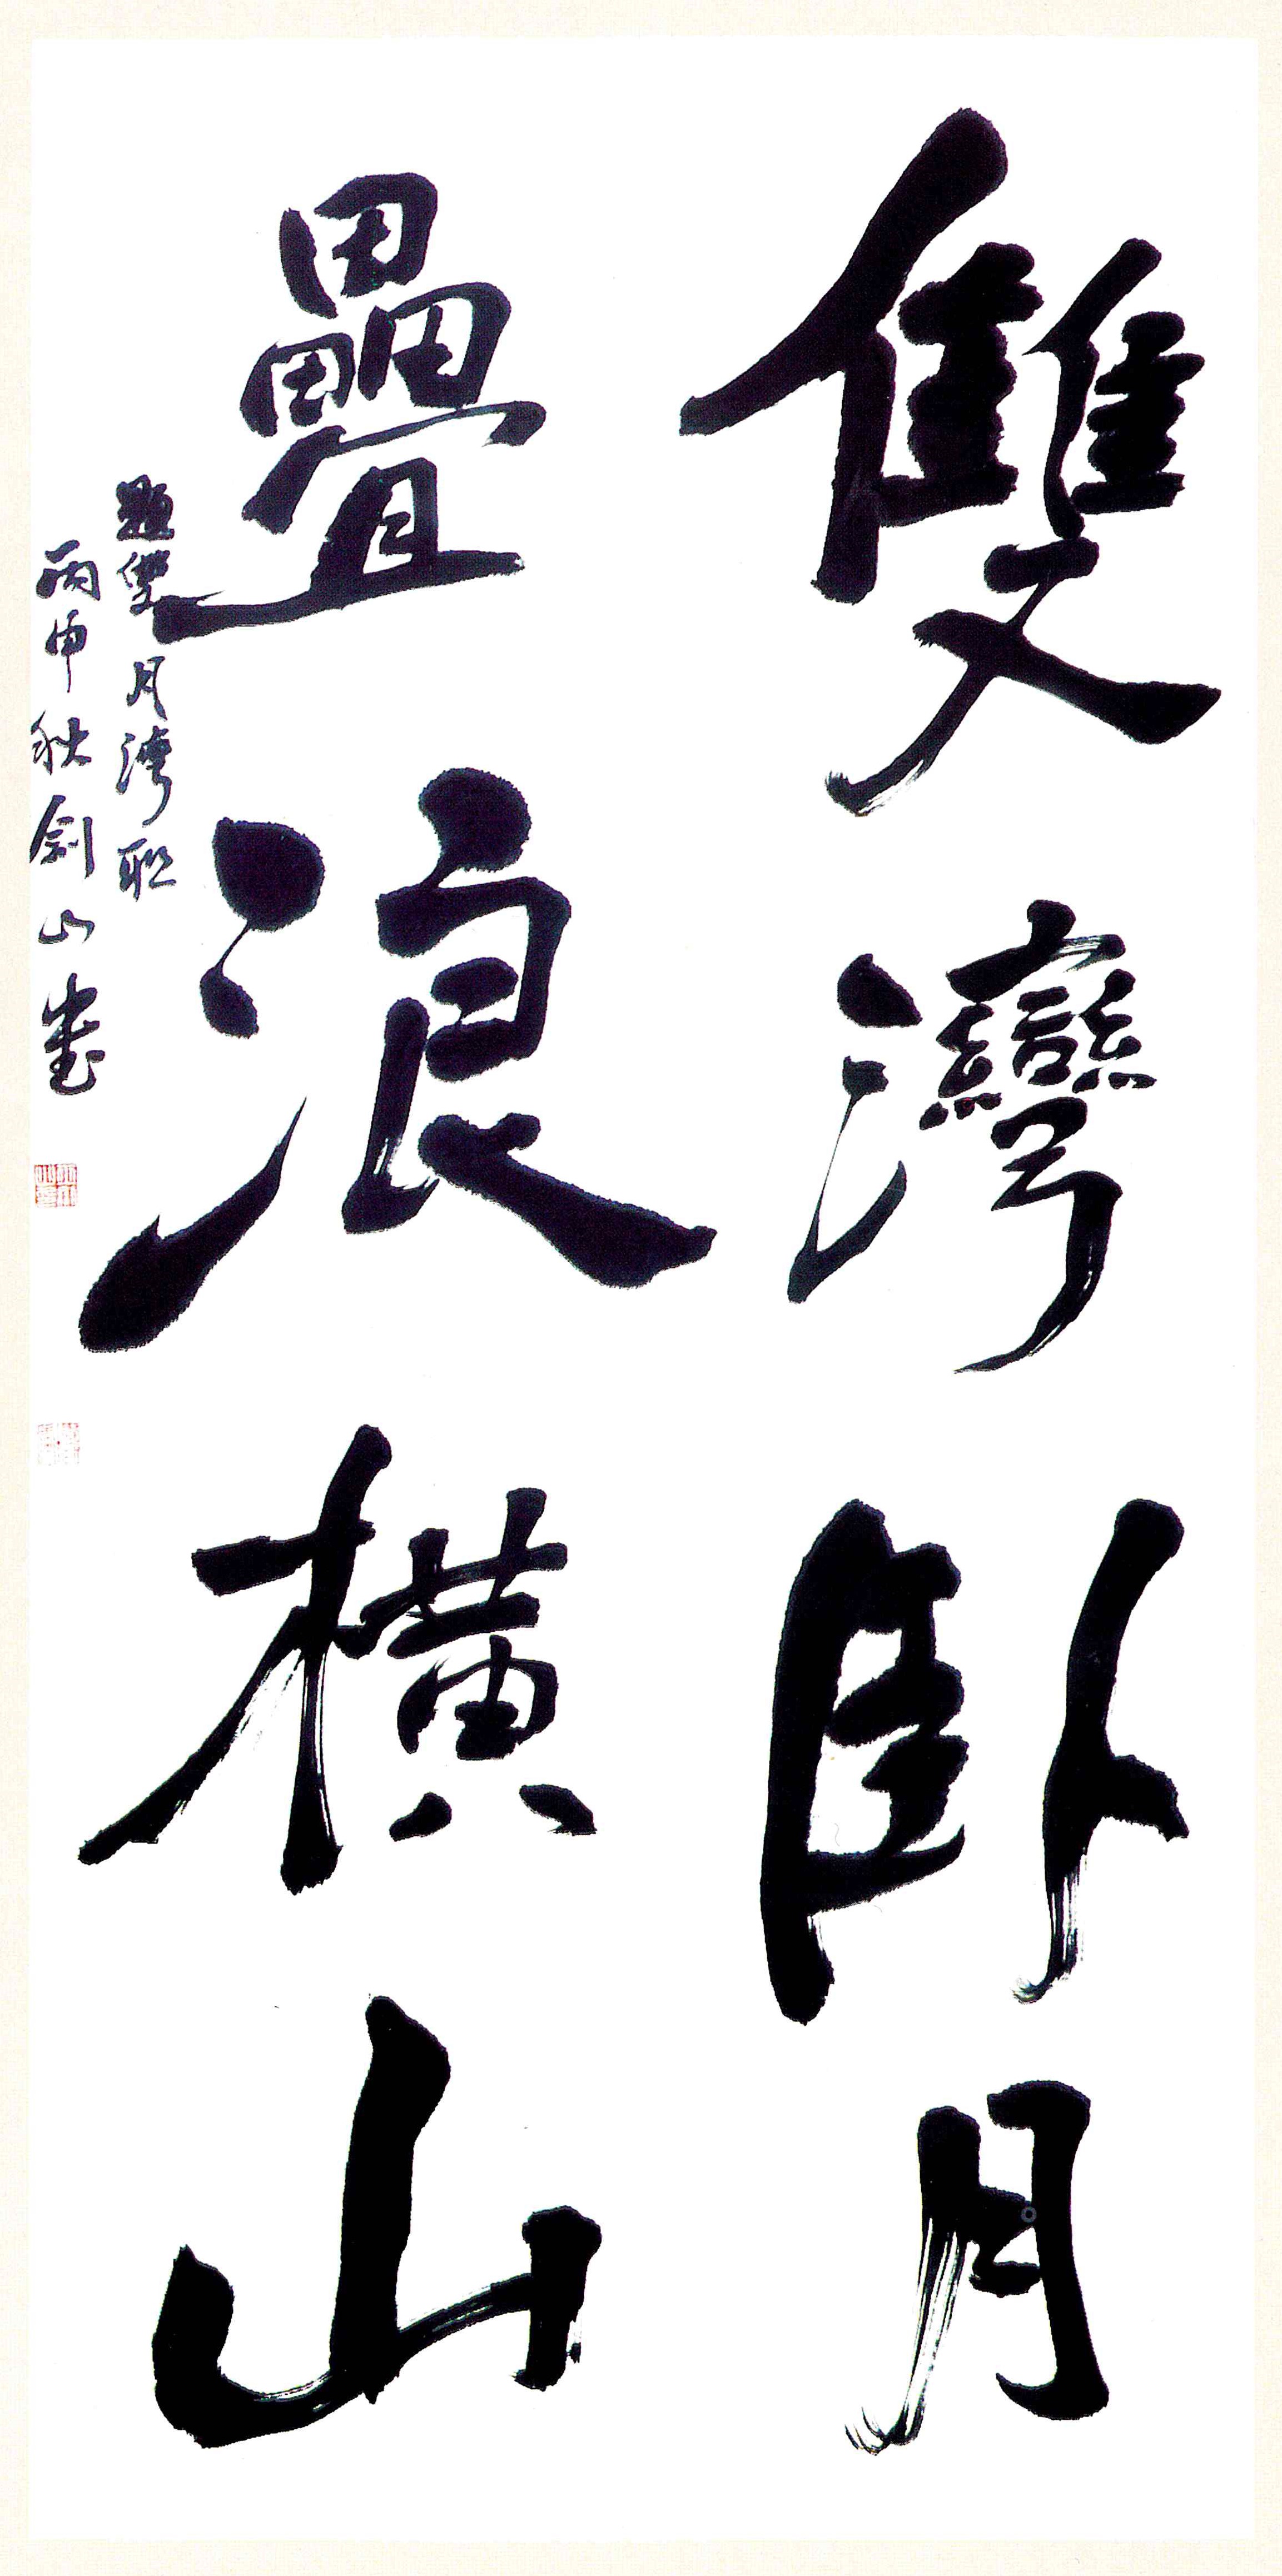 雙灣卧月
疊浪橫山
題雙月灣聯
丙申秋劍山書